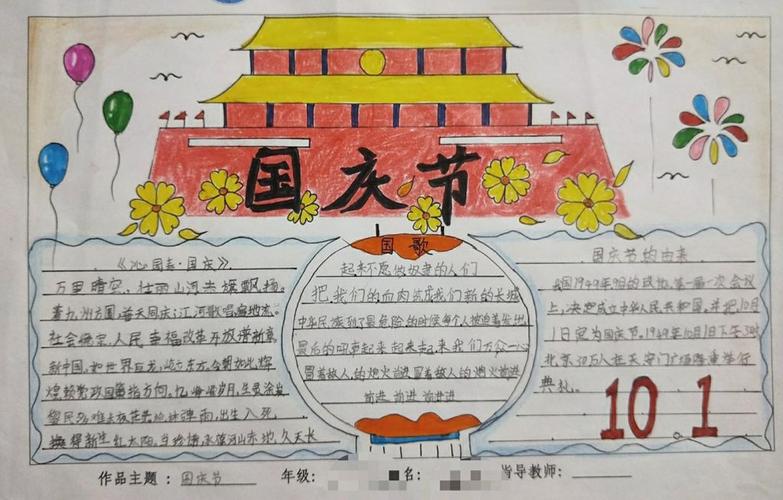 国庆节
《沁园春·国庆》
万里晴空，壮丽山河，赤旗飘扬。
普天同庆，江河歌唱
社会稳定，人民幸福改革开放谱新章
新中国，如世界巨龙，屹立东方，今朝如此辉
煌
指方向，忆峥嵘岁月
出生入死，
换得新生红太阳，
久天长
国歌
起来不愿做奴隶的人们
把我们的血肉筑成我们新的长城
中华民族到了最危险的时候每个人被迫着发出
最后的吼声起来起来起来我们万众一心
冒着敌人的炮火前进冒着敌人的炮火前进
前进 前进 前进进
国庆节的由来
我国1949年9月的政协第一届一次会议
上，决定成立中华人民共和国，并把10月
1日定为国庆节。1949年10月1日下午3时
北京30万人在天安门广场隆重举行
典礼。
10.1
作品主题：国庆节 年级： 名： 指导教师：